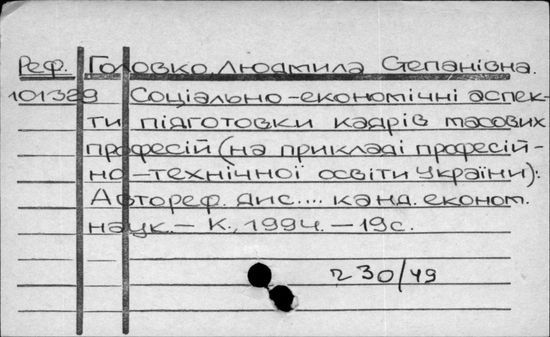 Реф. Головко, Людмила Степанівна.
101389 Соціально-економічні аспек-
ти підготовки кадрів масових
професій (на прикладі професій-
но-технічної освіти України):
Автореф. дис.... канд. економ.
наук. – К., 1994. – 19с.
230/49